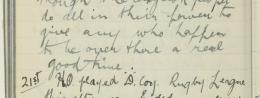 do all in their power to
give any who happen
to be over there a real
good time.
21st HQ played D. Coy. Rugby League